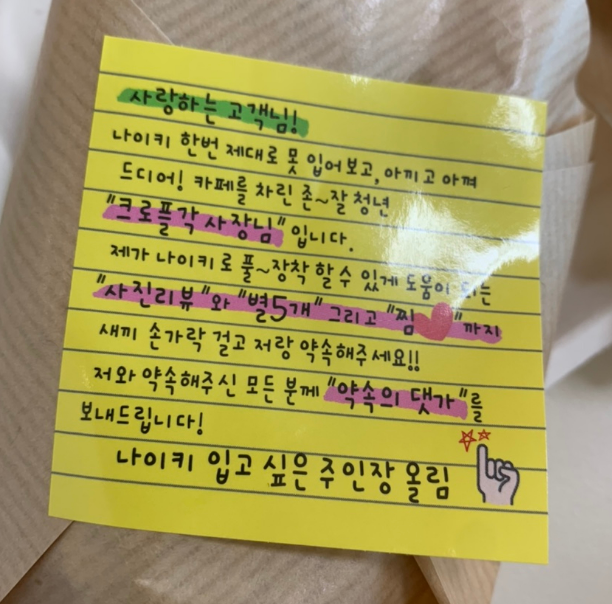 사랑하는 고객님!
나이키 한번 제대로 못 입어보고, 아끼고 아껴
드디어! 카페를 차린 존~잘 청년
"크로플각 사장님" 입니다.
제가 나이키로 풀~장착 할 수 있게 도움이 되는
"사진리뷰"와 "별5개" 그리고 "찜♥"까지
새끼 손가락 걸고 저랑 약속해주세요!!
저와 약속해주신 모든 분께 "약속의 댓가"를
보내드립니다!
나이키 입고 싶은 주인장 올림